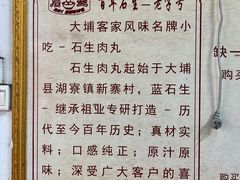 百年石生—老字号
大埔客家风味名牌小
吃 - 石生肉丸
石生肉丸起始于大埔
县湖寮镇新寨村，蓝石生
- 继承祖业专研打造 - 历
代至今百年历史；真材实
料；口感纯正；原汁原
味；深受广大客户的喜
缺一
购买